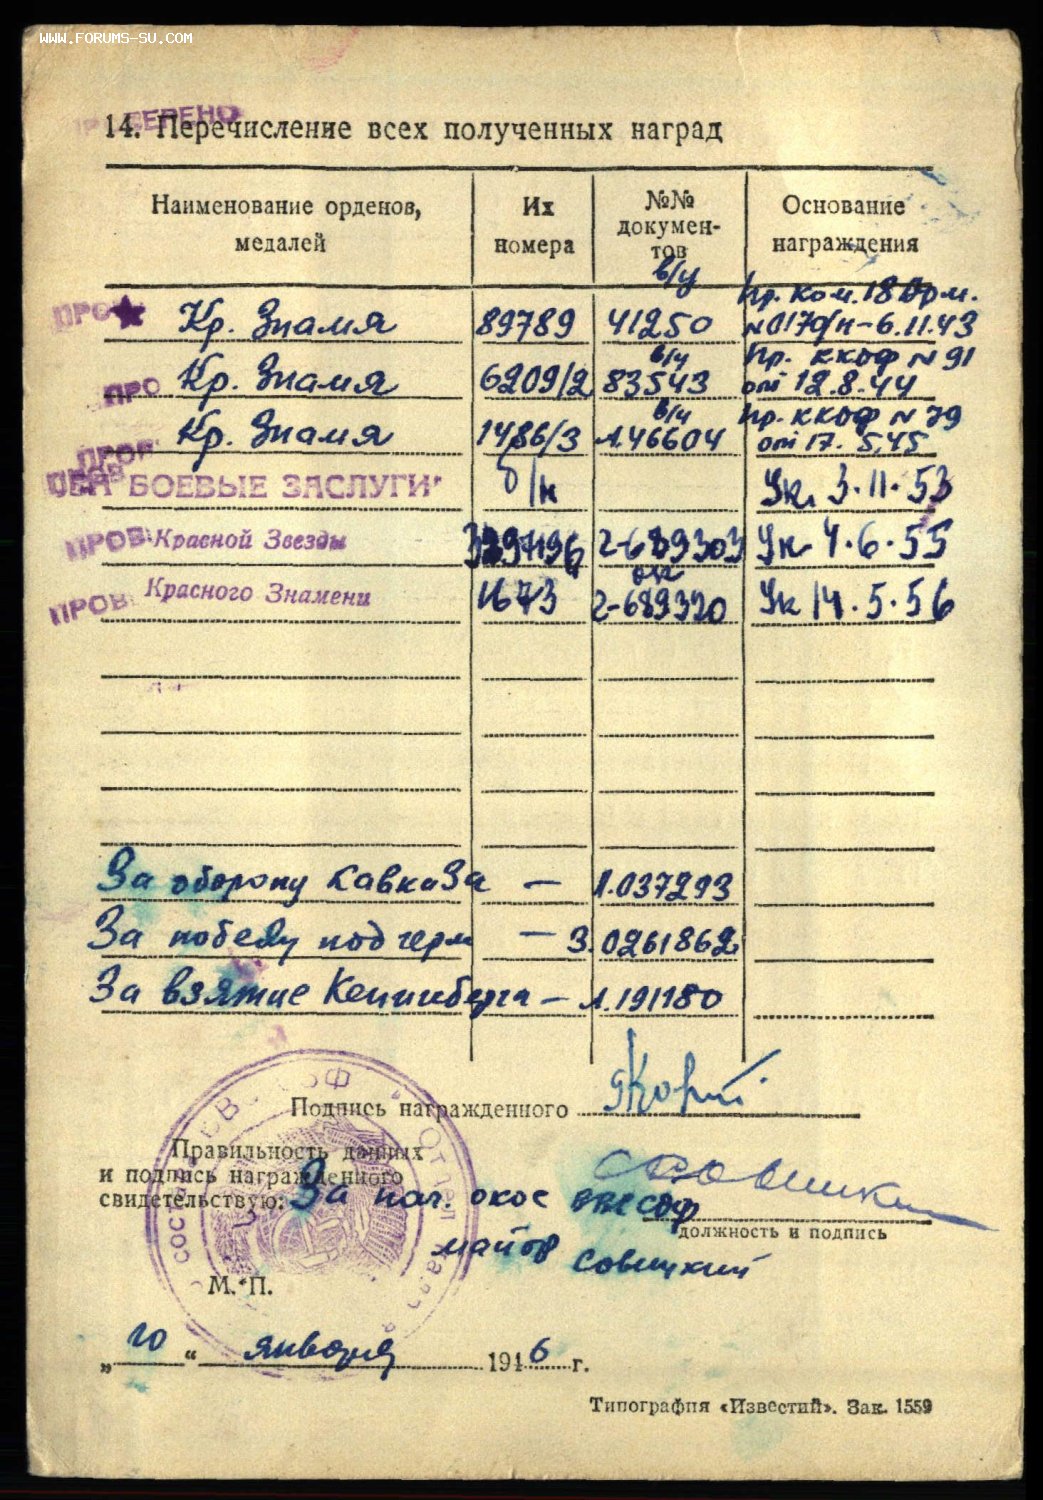 WWW.FORUMS-SU.COM
14. Перечисление всех полученных наград
Наименование орденов, медалей
Их номера
№№ докумен-тов
Основание награждения
Кр. Знамя 89789 в/у 41250 Пр. ком. 18 Арм. N 0170/н - 6.11.43
Кр. Знамя 6209/2 в/у 83543 Пр. ККОФ N 91 от 12.8.44
Кр. Знамя 1486/3 в/у Л.46604 Пр. ККОФ N 79 от 17.5.45
БОЕВЫЕ ЗАСЛУГИ" б/н Ук. 3.11.53
Красной Звезды г-689303 Ук 4.6.55
Красного Знамени 1673 г-689320 Ук 14.5.56
За оборону Кавказа — Л.037293
За победу над герм — З.0261862
За взятие Кенигсберга — Л.191180
Подпись награжденного
Правильность данных
и подпись награжденного
свидетельствую: За нач.
должность и подпись
майор Совицкий
М. П.
„20“ января 1946 г.
Типография «Известий». Зак. 1559